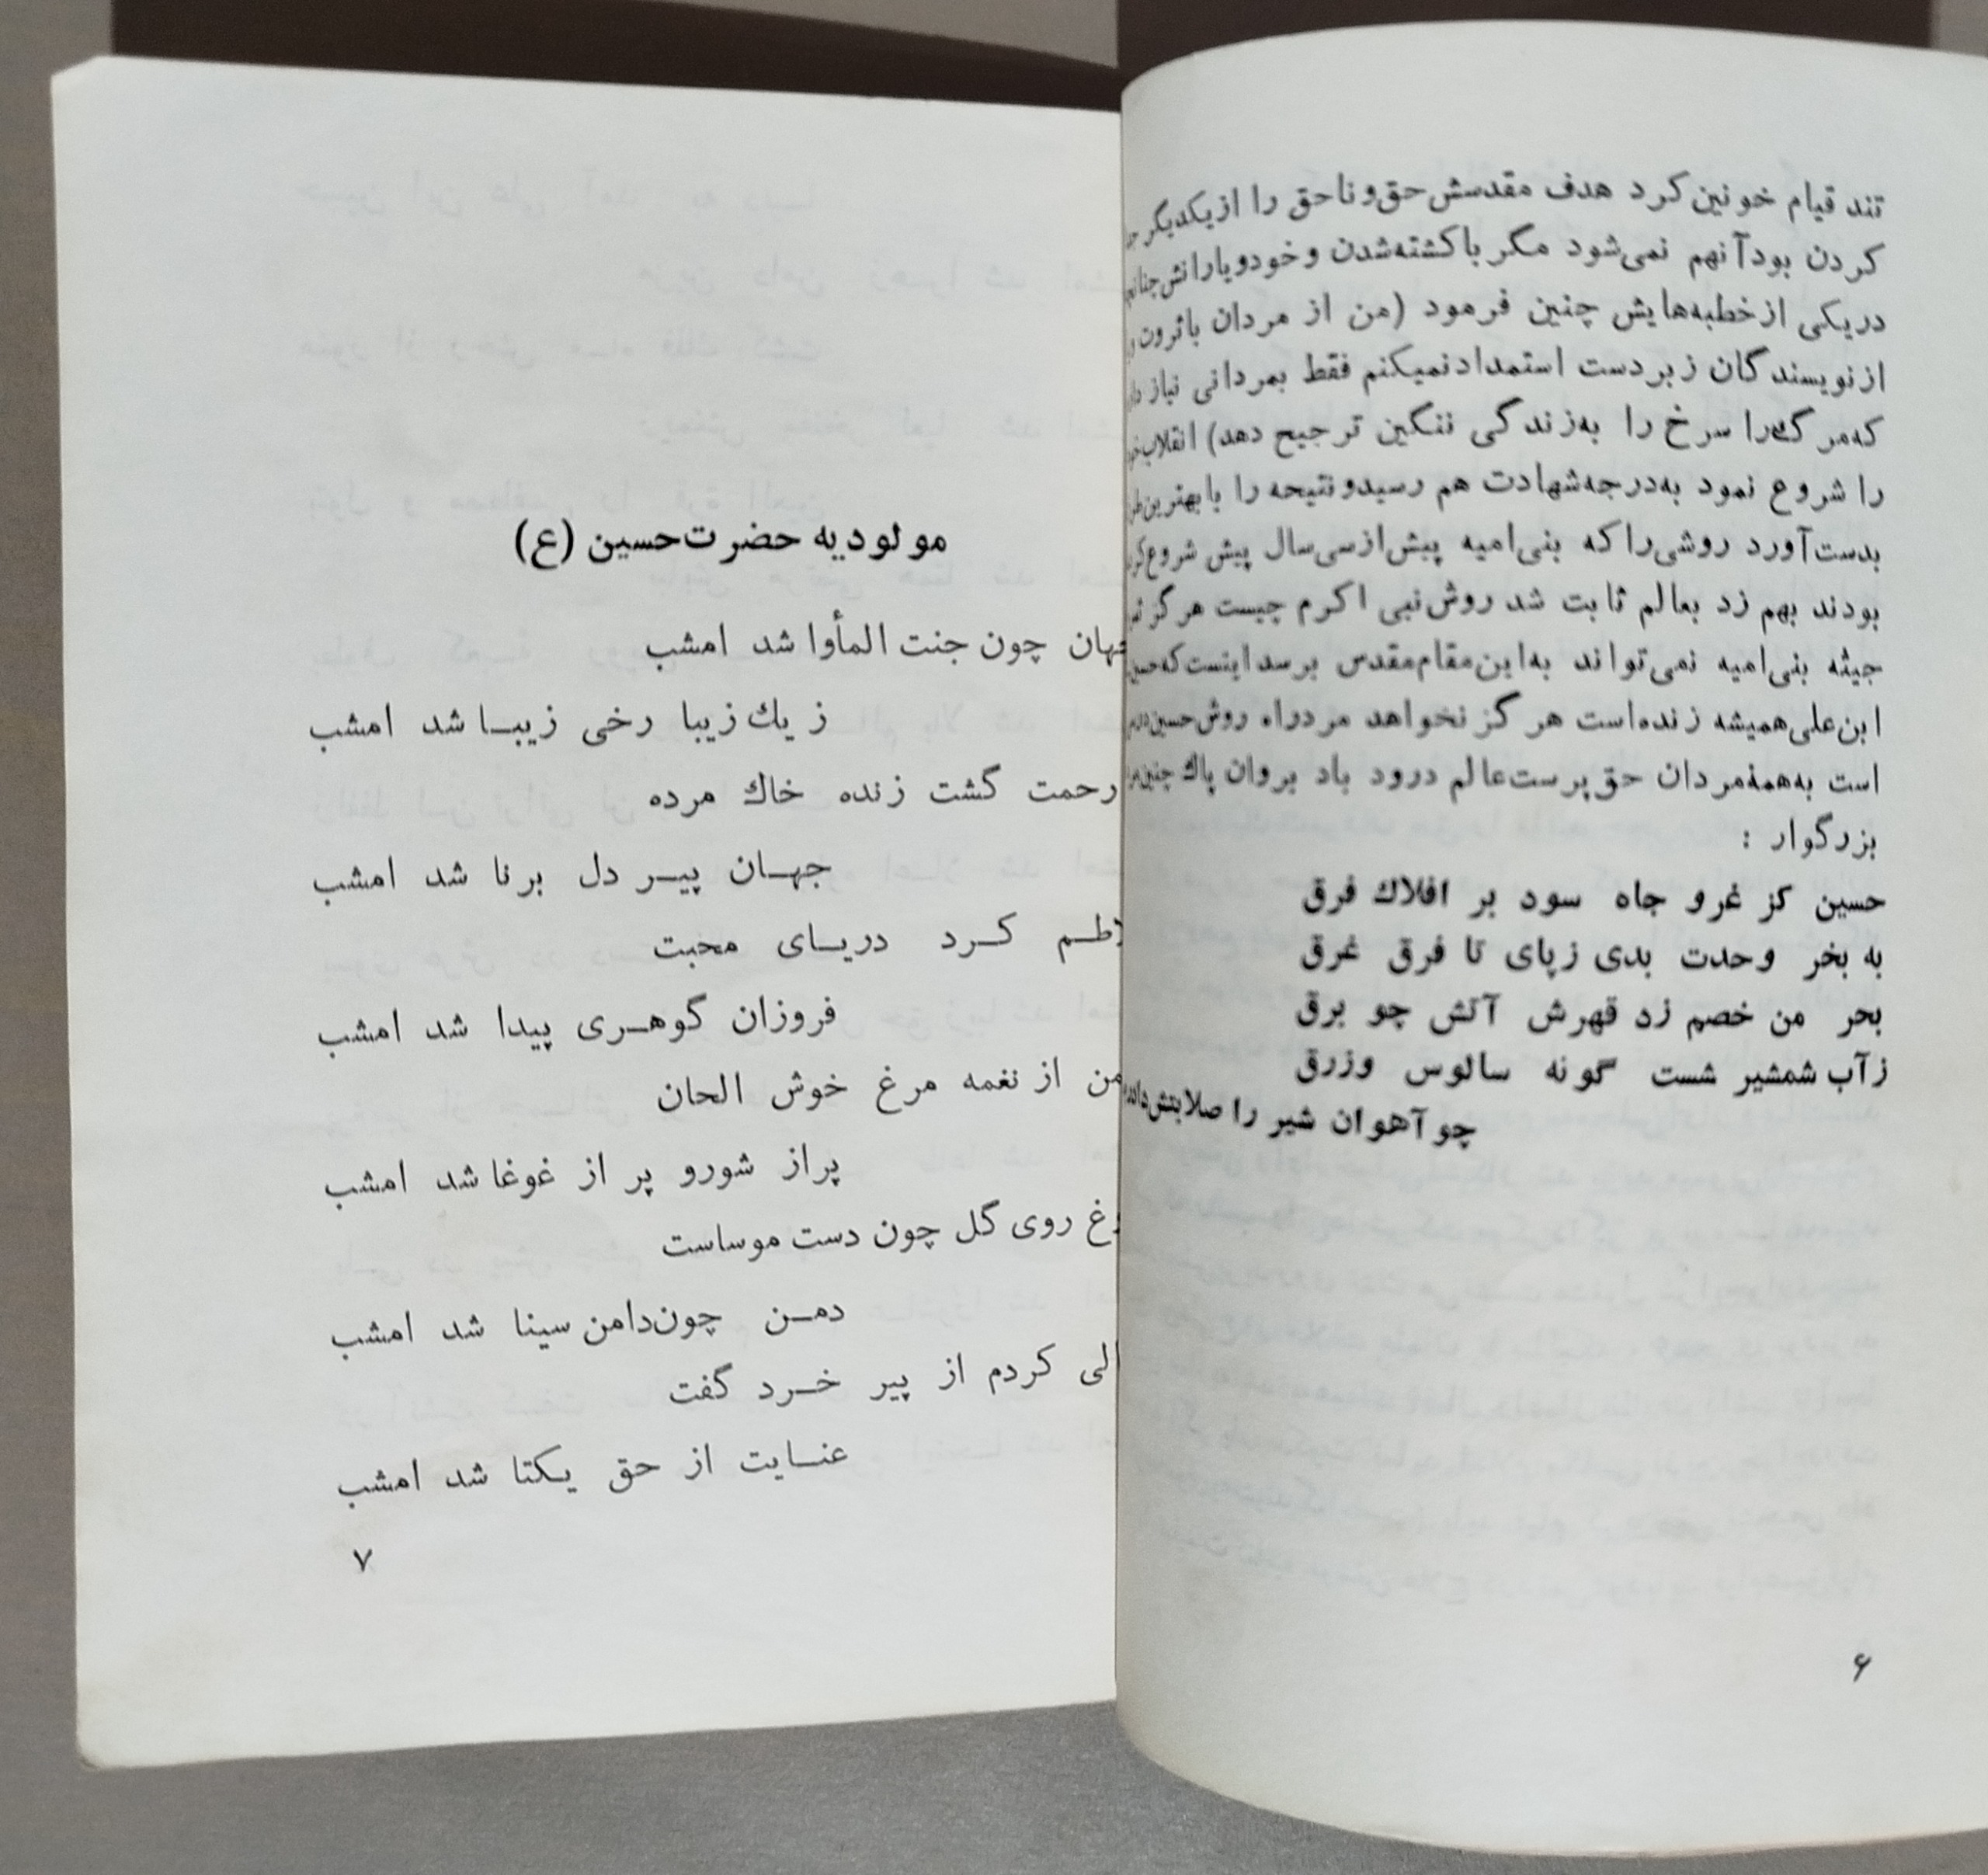 تند قیام خونین کرد هدف مقدسش حق و ناحق را از یکدیگر
کردن بود آنهم نمی‌شود مگر با کشته‌شدن و خود و یارانش
در یکی از خطبه‌هایش چنین فرمود (من از مردان با ثروت
از نویسندگان زبردست استمداد نمیکنم فقط بمردانی نیاز
که مرگ را سرخ را به‌زندگی ننگین ترجیح دهد) انقلاب
را شروع نمود به‌درجه‌شهادت هم رسید و نتیحه را با بهترین
بدست آورد روشی را که بنی‌امیه پیش‌از‌سی‌سال پیش شروع
بودند بهم زد بعالم ثابت شد روش نبی اکرم چیست هرگز
جیثه بنی‌امیه نمی‌تواند به‌این‌مقام‌مقدس برسد اینست که
ابن‌علی‌همیشه زنده‌است هرگز نخواهد مرد راه روش حسین
است به‌همهٔ‌مردان حق‌پرست‌عالم درود باد بروان پاك
بزرگوار :
حسین کز غرو جاه سود بر افلاك فرق
به بخر وحدت بدی زپای تا فرق غرق
بحر من خصم زد قهرش آتش چو برق
زآب شمشیر شست گونه سالوس وزرق
چو آهوان شیر را صلابتش
۶
مولودیه حضرت‌حسین (ع)
چون جنت المأوا شد امشب
ز یك زیبا رخی زیبـا شد امشب
رحمت گشت زنده خاك مرده
جهـان پیـر دل برنا شد امشب
کـرد دریـای محبت
فروزان گوهـری پیدا شد امشب
از نغمه مرغ خوش الحان
پراز شورو پر از غوغا شد امشب
روی گل چون دست موساست
دمـن چون‌دامن سینا شد امشب
کردم از پیر خـرد گفت
عنـایت از حق یکتا شد امشب
۷